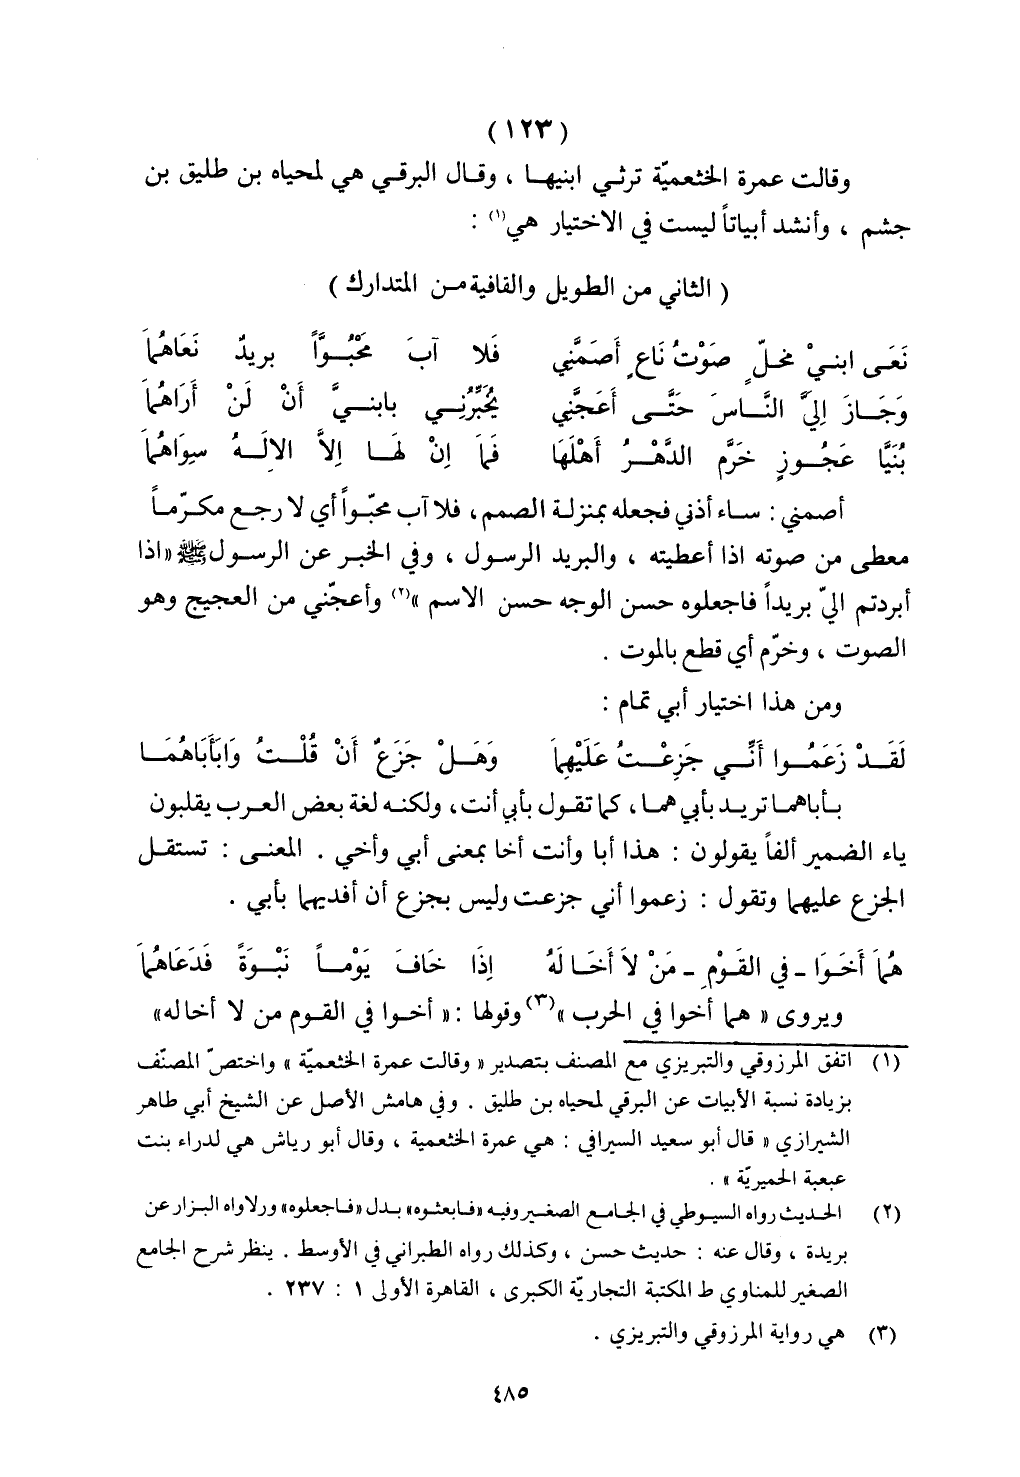 ( ١٢٣ )
وقالت عمرة الخثعميّة ترثي ابنيها ، وقال البرقي هي لمحياه بن طليق بن
جشم ، وأنشد أبياتاً ليست في الاختيار هي(١) :
( الثاني من الطويل والقافية من المتدارك )
نَعَى ابنيْ محلٍّ صَوْتُ نَاعٍ أَصَمَّنِي فَلا آبَ مَحْبُوَّاً بريدٌ نَعَاهُمَا
وَجَازَ إليَّ النَّاسَ حَتَّى أَعَجَّنِي يُخَبِّرُنِي بابنيَّ أَنْ لَنْ أَرَاهُمَا
بُنَيَّا عَجُوزٍ خَرَّم الدَّهْرُ أَهْلَهَا فَمَا اِنْ لَهَا اِلاَّ الالَهُ سِوَاهُمَا
أصمني : ساء أذني فجعله بمنزلة الصمم ، فلا آب محبّواً أي لا رجع مكرّماً
معطى من صوته اذا أعطيته ، والبريد الرسول ، وفي الخبر عن الرسول ﷺ «اذا
أبردتم اليّ بريداً فاجعلوه حسن الوجه حسن الاسم »(٢) وأعجّني من العجيج وهو
الصوت ، وخرّم أي قطع بالموت .
ومن هذا اختيار أبي تمام :
لَقَدْ زَعَمُوا أَنِّي جَزِعْتُ عَلَيْهِمَا وَهَلْ جَزَعٌ أَنْ قُلْتُ وَابَأَبَاهُمَا
بأباهما تريد بأبي هما ، كما تقول بأبي أنت ، ولكنه لغة بعض العرب يقلبون
ياء الضمير ألفاً يقولون : هذا أبا وأنت أخا بمعنى أبي وأخي . المعنى : تستقل
الجزع عليهما وتقول : زعموا أني جزعت وليس بجزع أن أفديهما بأبي .
هُمَا أَخَوَا - في القَوْمِ - مَنْ لاَ أَخَا لَهُ إذَا خَافَ يَوْماً نَبْوَةً فَدَعَاهُمَا
ويروى « هما أخوا في الحرب »(٣) وقولها : « أخوا في القوم من لا أخا له»
(١) اتفق المرزوقي والتبريزي مع المصنف بتصدير « وقالت عمرة الخثعميّة » واختصّ المصنّف
بزيادة نسبة الأبيات عن البرقي لمحياه بن طليق . وفي هامش الأصل عن الشيخ أبي طاهر
الشيرازي « قال أبو سعيد السيرافي : هي عمرة الخثعمية ، وقال أبو رياش هي لدراء بنت
عبعبة الحميريّة » .
(٢) الحديث رواه السيوطي في الجامع الصغير وفيه «فابعثوه» بدل «فاجعلوه» ورلاواه البزار عن
بريدة ، وقال عنه : حديث حسن ، وكذلك رواه الطبراني في الأوسط . ينظر شرح الجامع
الصغير للمناوي ط المكتبة التجاريّة الكبرى ، القاهرة الأولى ١ : ٢٣٧ .
(٣) هي رواية المرزوقي والتبريزي .
٤٨٥